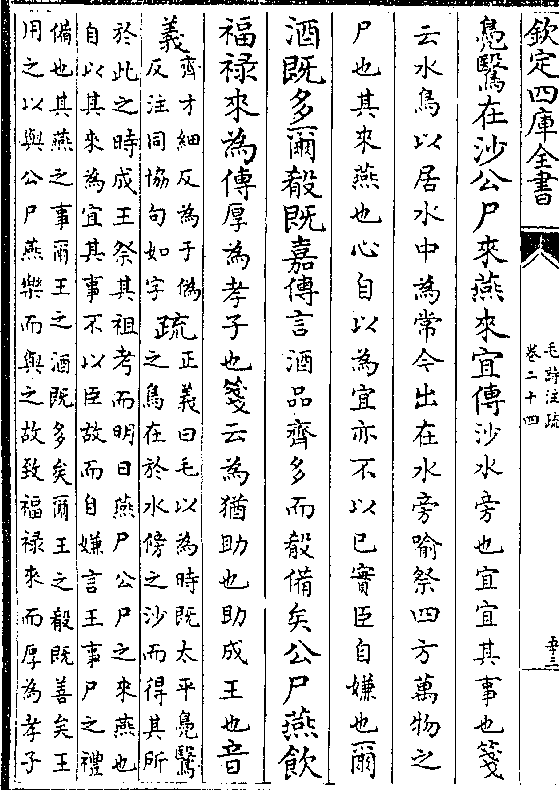 欽定四庫全書
毛詩注疏
卷二十四
鳧鷖在沙公尸來燕來宜傳沙水旁也宜宜其事也箋
云水鳥以居水中為常今出在水旁喻祭四方萬物之
尸也其來燕也心自以為宜亦不以已實臣自嫌也爾
酒既多爾殽既嘉傳言酒品齊多而殽備矣公尸燕飲
福禄來為傳厚為孝子也箋云為猶助也助成王也音
義齊才細反為于偽
反注同協句如字疏正義曰毛以為時既太平鳧鷖
之鳥在於水傍之沙而得其所
於此之時成王祭其祖考而明日燕尸公尸之來燕也
自以其來為宜其事不以臣故而自嫌言王事尸之禮
備也其燕之事爾王之酒既多矣爾王之殽既善矣王
用之以與公尸燕樂而與之故致福禄來而厚為孝子